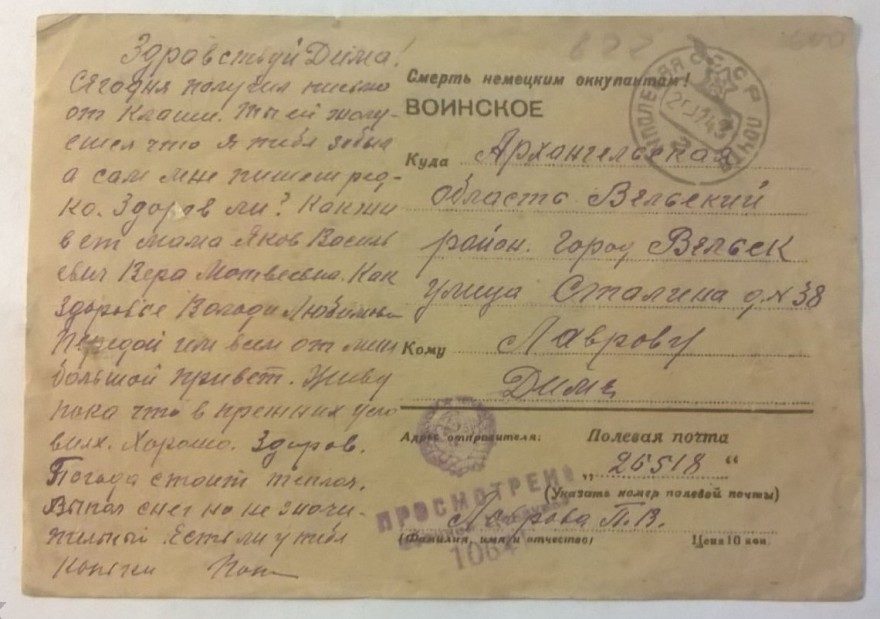 Здравствуй Дима!
Сегодня получил письмо
от Клаши. Ты ей жалу-
ешся что я тебя забыл
а сам мне пишеш ред-
ко. Здоров ли? Как жи
вет мама Яков Василь
евич Вера Матвеевна. Как
здоровье Володи
Передай им всем от меня
большой привет. Живу
пока что в прежних усло
виях. Хорошо. Здоров.
Погода стоит теплая.
Выпал снег но не значи-
тельный. Есть ли у тебя
коньки
Смерть немецким оккупантам!
ВОИНСКОЕ
Куда Архангельская
область Вельский
район. город Вельск
улица Сталина д. № 38
Кому Лаврову
Диме
Адрес отправителя: Полевая почта
„ 26518 “
(Указать номер полевой почты)
Лаврова П.В.
(Фамилия, имя и отчество) Цена 10 коп.
ПОЛЕВАЯ ПОЧТА
СССР
ПРОСМОТРЕНО